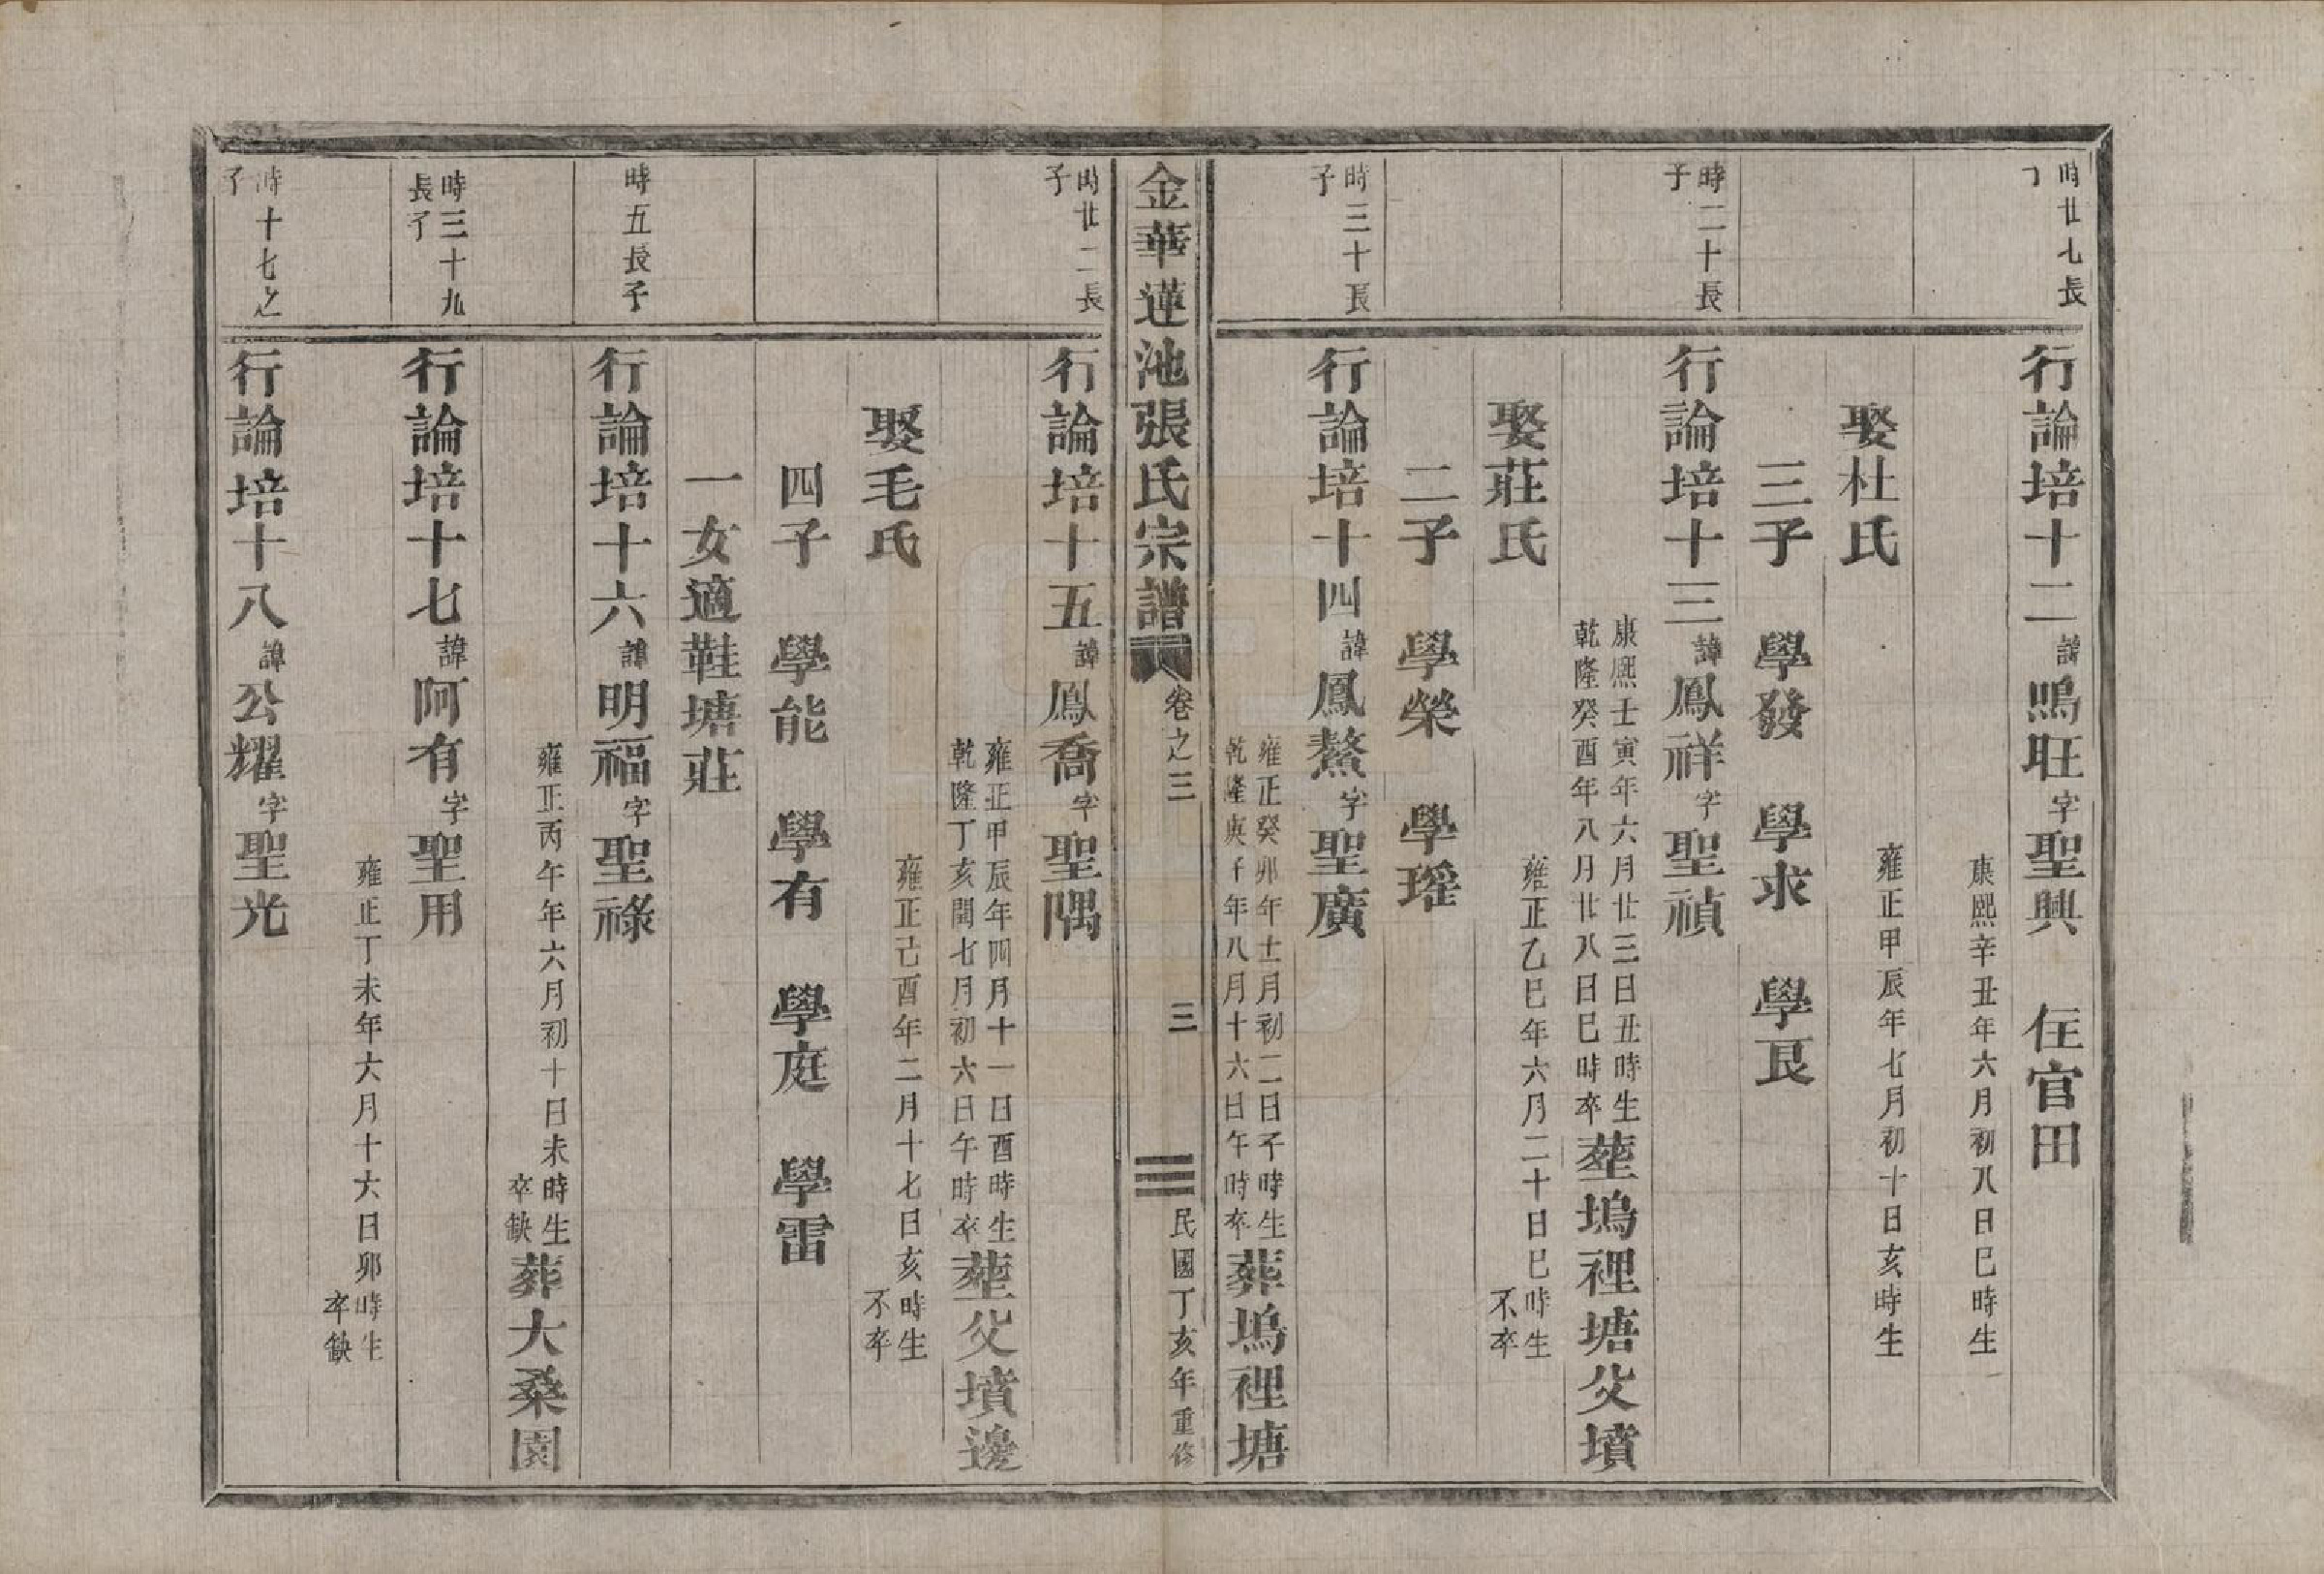 時廿七長
子
行論培十二諱鳴旺字聖興 住官田
康熙辛丑年六月初八日巳時生
娶杜氏
雍正甲辰年七月初十日亥時生
三子 學發 學求 學艮
時二十長
子
行論培十三諱鳳祥字聖禎
康熙壬寅年六月廿三日丑時生
乾隆癸酉年八月廿八日巳時卒
塟塢裡塘父墳
娶莊氏
雍正乙巳年六月二十日巳時生
不卒
二子 學榮 學瑶
時三十長
子
行論培十四諱鳳鰲字聖廣
雍正癸卯年十二月初二日子時生
乾隆庚午年八月十六日午時卒
葬塢裡塘
金華蓮池張氏宗譜
卷之三
三
民國丁亥年重修
時廿二長
子
行論培十五諱鳳喬字聖隅
雍正甲辰年四月十一日酉時生
乾隆丁亥閏七月初六日午時卒
塟父墳邊
娶毛氏
雍正己酉年二月十七日亥時生
不卒
四子 學能 學有 學庭 學雷
一女適鞋塘莊
時五長子
行論培十六諱明福字聖祿
雍正丙午年六月初十日未時生
卒缺
葬大桑園
時三十九
長子
行論培十七諱阿有字聖用
雍正丁未年六月十六日卯時生
卒缺
時十七之
子
行論培十八諱公耀字聖光